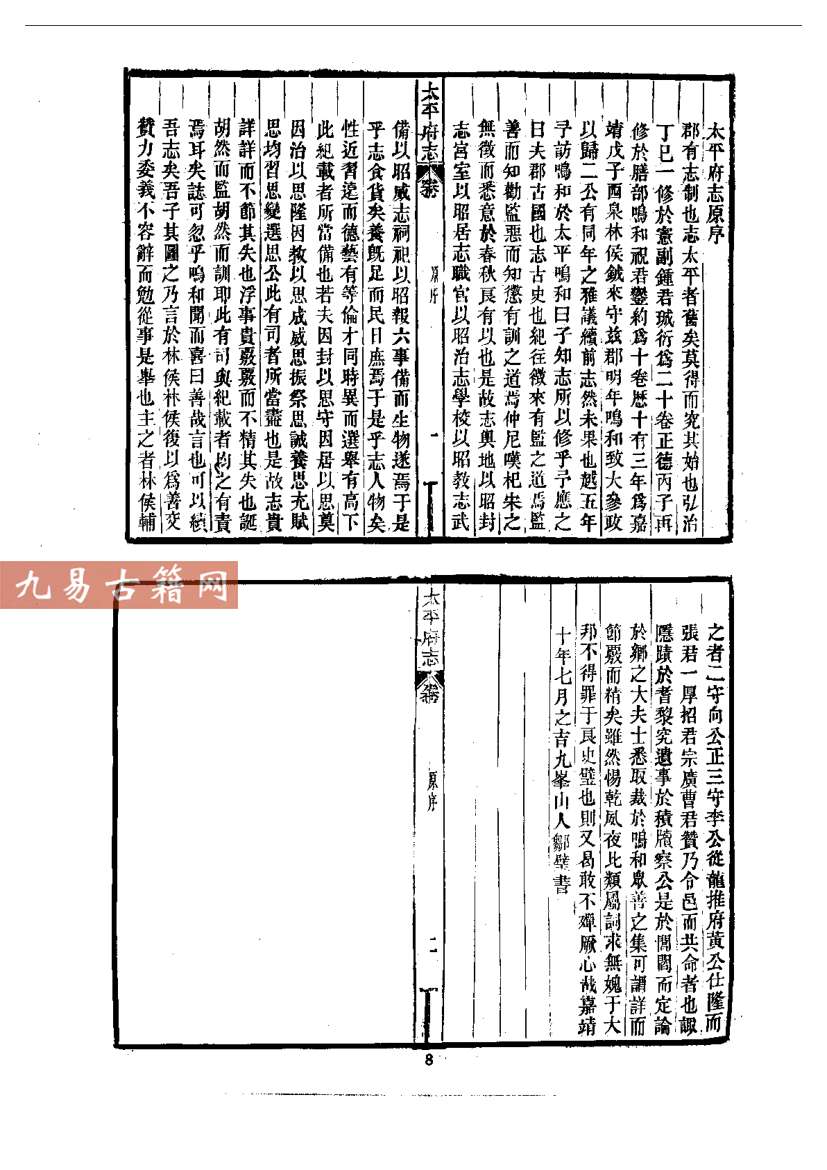 太平府志原序
郡有志制也志太平者舊矣莫得而究其始也弘治
丁巳一修於憲副鍾君珹衍爲二十卷正德丙子再
修於膳部鳴和祝君鑾約爲十卷歷十有三年爲嘉
靖戊子酉泉林侯鉞來守兹郡明年鳴和致大參政
以歸二公有同年之雅議續前志然未果也越五年
予訪鳴和於太平鳴和曰子知志所以修乎予應之
曰夫郡古國也志古史也紀往徵來有監之道焉監
善而知勸監惡而知懲有訓之道焉仲尼嘆杞宋之
無徵而悉意於春秋良有以也是故志輿地以昭封
志宮室以昭居志職官以昭治志學校以昭教志武
太平府志
卷
原序
一
備以昭威志祠祀以昭報六事備而生物遂焉于是
乎志食貨矣養旣足而民日庶焉于是乎志人物矣
性近習遠而德藝有等倫才同時異而選舉有高下
此紀載者所當備也若夫因封以思守因居以思奠
因治以思隆因教以思成威思振祭思誠養思充賦
思均習思變選思公此有司者所當盡也是故志貴
詳詳而不節其失也浮事貴嚴嚴而不精其失也誕
胡然而監胡然而訓耶此有司與紀載者均之有責
焉耳矣誌可忽乎鳴和聞而喜曰善哉言也可以續
吾志矣吾子其圖之乃言於林侯林侯復以爲善交
贊力委義不容辭而勉從事是舉也主之者林侯輔
之者二守向公正三守李公從龍推府黃公仕隆而
張君一厚招君宗廣曹君贊乃令邑而共命者也諏
隱蹟於耆黎究遺事於積牘察公是於閭閻而定論
於鄉之大夫士悉取裁於鳴和眾善之集可謂詳而
節嚴而精矣雖然惕乾夙夜比類屬詞求無媿于大
邦不得罪于良史璧也則又曷敢不殫厥心哉嘉靖
十年七月之吉九峯山人鄒璧書
太平府志
卷
原序
二
九易古籍网
8